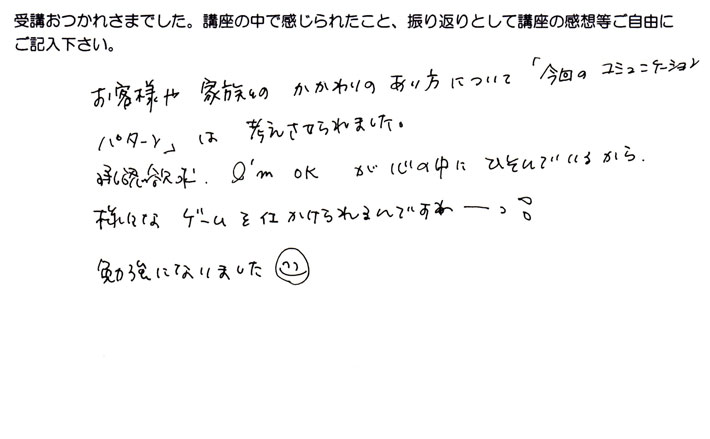 受講おつかれさまでした。講座の中で感じられたこと、振り返りとして講座の感想等ご自由に
ご記入下さい。
お客様や家族とのかかわりのあり方について「今回のコミュニケーション
パターン」は考えさせられました。
承認欲求. I'm OK が心の中にひそんでいるから.
様々なゲームを仕かけられるんですねーっ!!
勉強になりました